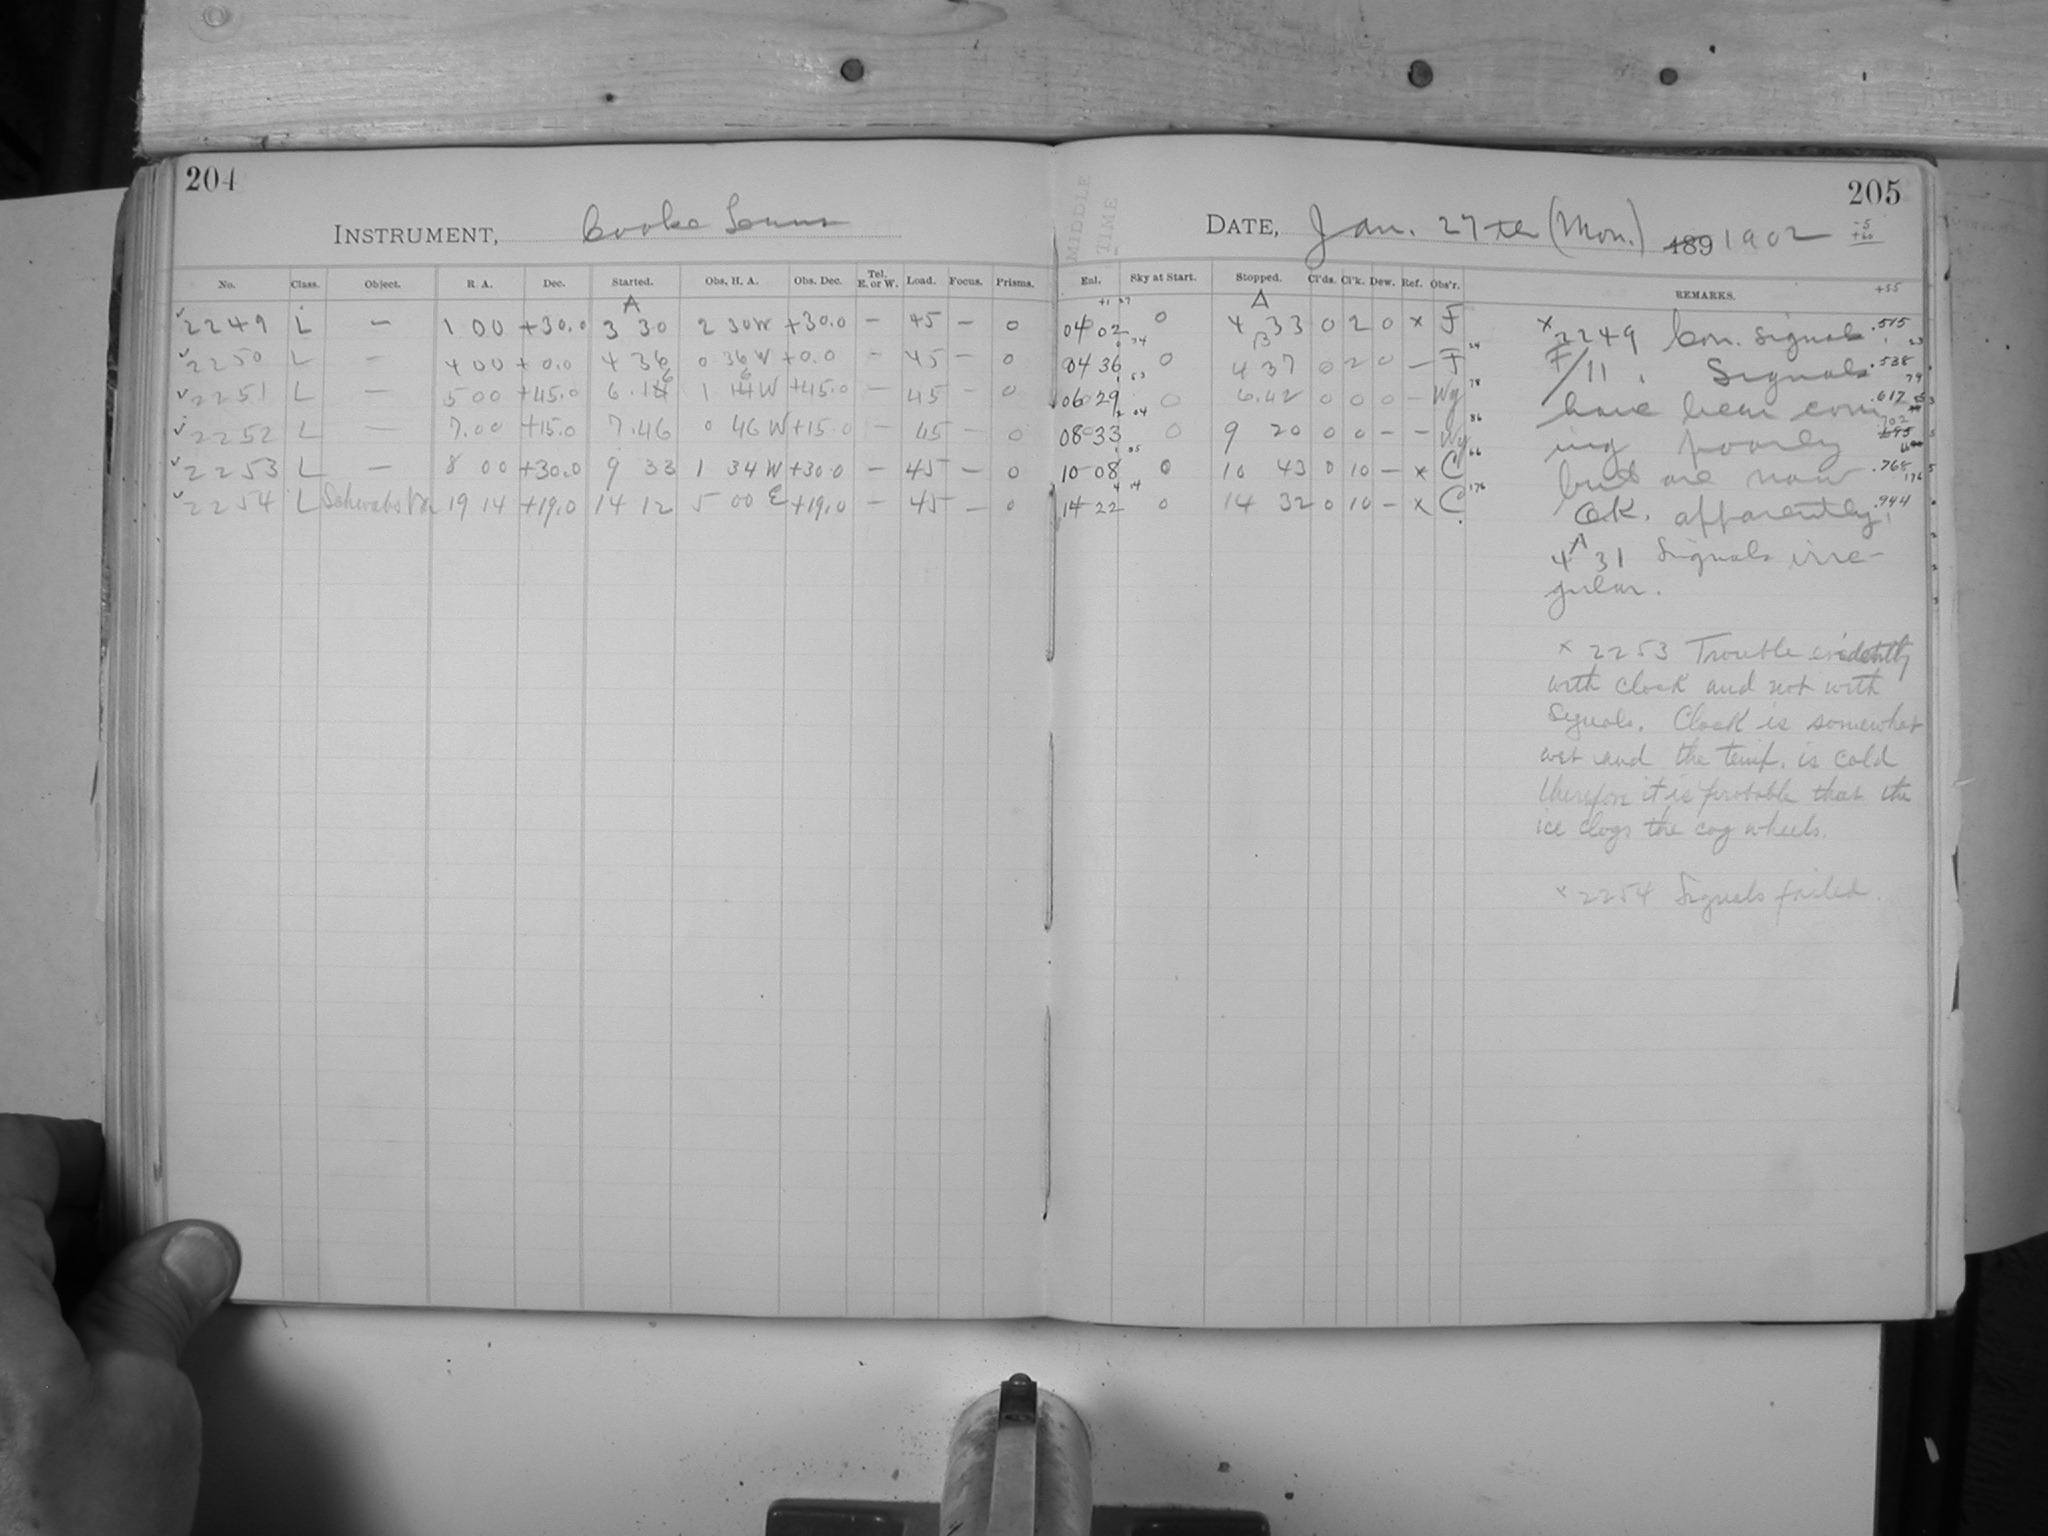 204
INSTRUMENT, Cooke Lens
No. Class. Object. R. A. Dec. Started. Obs. H. A. Obs. Dec. Tel. E. or W. Load. Focus. Prisms.
A
2249 L — 1 00 +30.0 3 30 2 30 W +30.0 — 45 — 0
2250 L — 4 00 + 0.0 4 36 0 36 W +0.0 — 45 — 0
2251 L — 5 00 +45.0 6.16 1 16 W +45.0 — 45 — 0
2252 L — 7.00 +15.0 7.46 0 46 W +15.0 — 45 — 0
2253 L — 8 00 +30.0 9 33 1 34 W +30.0 — 45 — 0
2254 L 19 14 +19.0 14 12 5 00 E +19.0 — 45 — 0
205
MIDDLE
TIME
DATE, Jan. 27th (Mon.) 189 1902
Enl. Sky at Start. Stopped. Cl'ds. Cl'k. Dew. Ref. Obs'r. REMARKS.
+55
A
04 02 0 4 33 0 2 0 x F
04 36 0 4 37 0 2 0 — F
06 29 0 6.42 0 0 0 — Wg
08 33 0 9 20 0 0 — — Wg
10 08 0 10 43 0 10 — x C
14 22 0 14 32 0 10 — x C
x 2249 Con. signals .515
F/11. Signals .538
have been com .617
ing poorly .702
but are now .768
O.K. apparently. .944
4 31 Signals irre-
gular.
x 2253 Trouble evidently
with clock and not with
Signals. Clock is somewhat
wet and the temp. is cold
therefore it is probable that the
ice clogs the cog wheels.
x 2254 Signals failed.